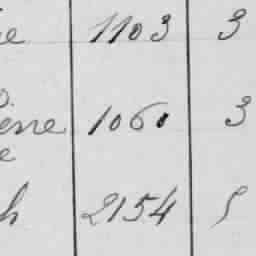 e 1103 3
enne 1060 3
e
h 2154 5